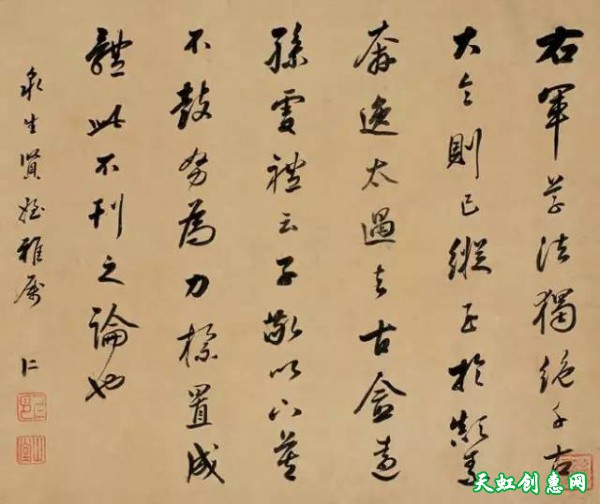 右軍草法獨絕千古
大令則已縱至於顛素
奔逸太過去古益遠
孫虔禮云子敬以下莫
不鼓努為力標置成
體此不刊之論也
泉生賢姪雅屬 仁
天虹创惠网